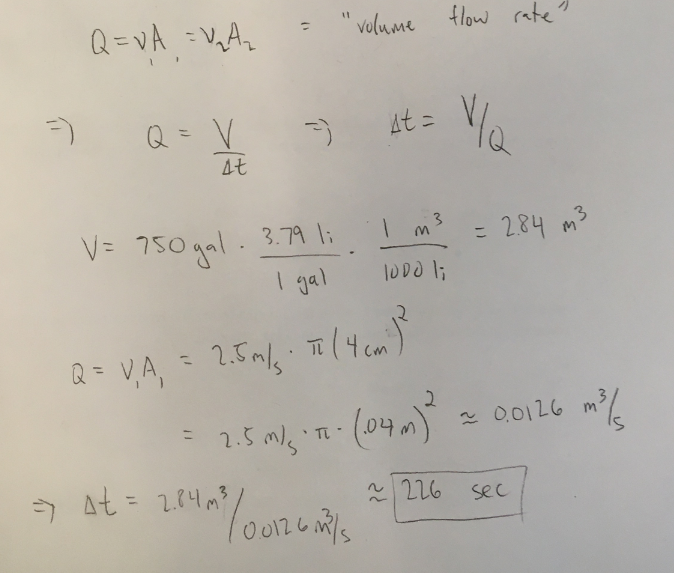 Q = v₁A₁ = v₂A₂ = "volume flow rate"
⇒ Q = V/Δt ⇒ Δt = V/Q
V = 750 gal · 3.79 li/1 gal · 1 m³/1000 li = 2.84 m³
Q = V₁A₁ = 2.5 m/s · π(4 cm)²
= 2.5 m/s · π · (.04 m)² ≈ 0.0126 m³/s
⇒ Δt = 2.84 m³/0.0126 m³/s ≈ 226 sec